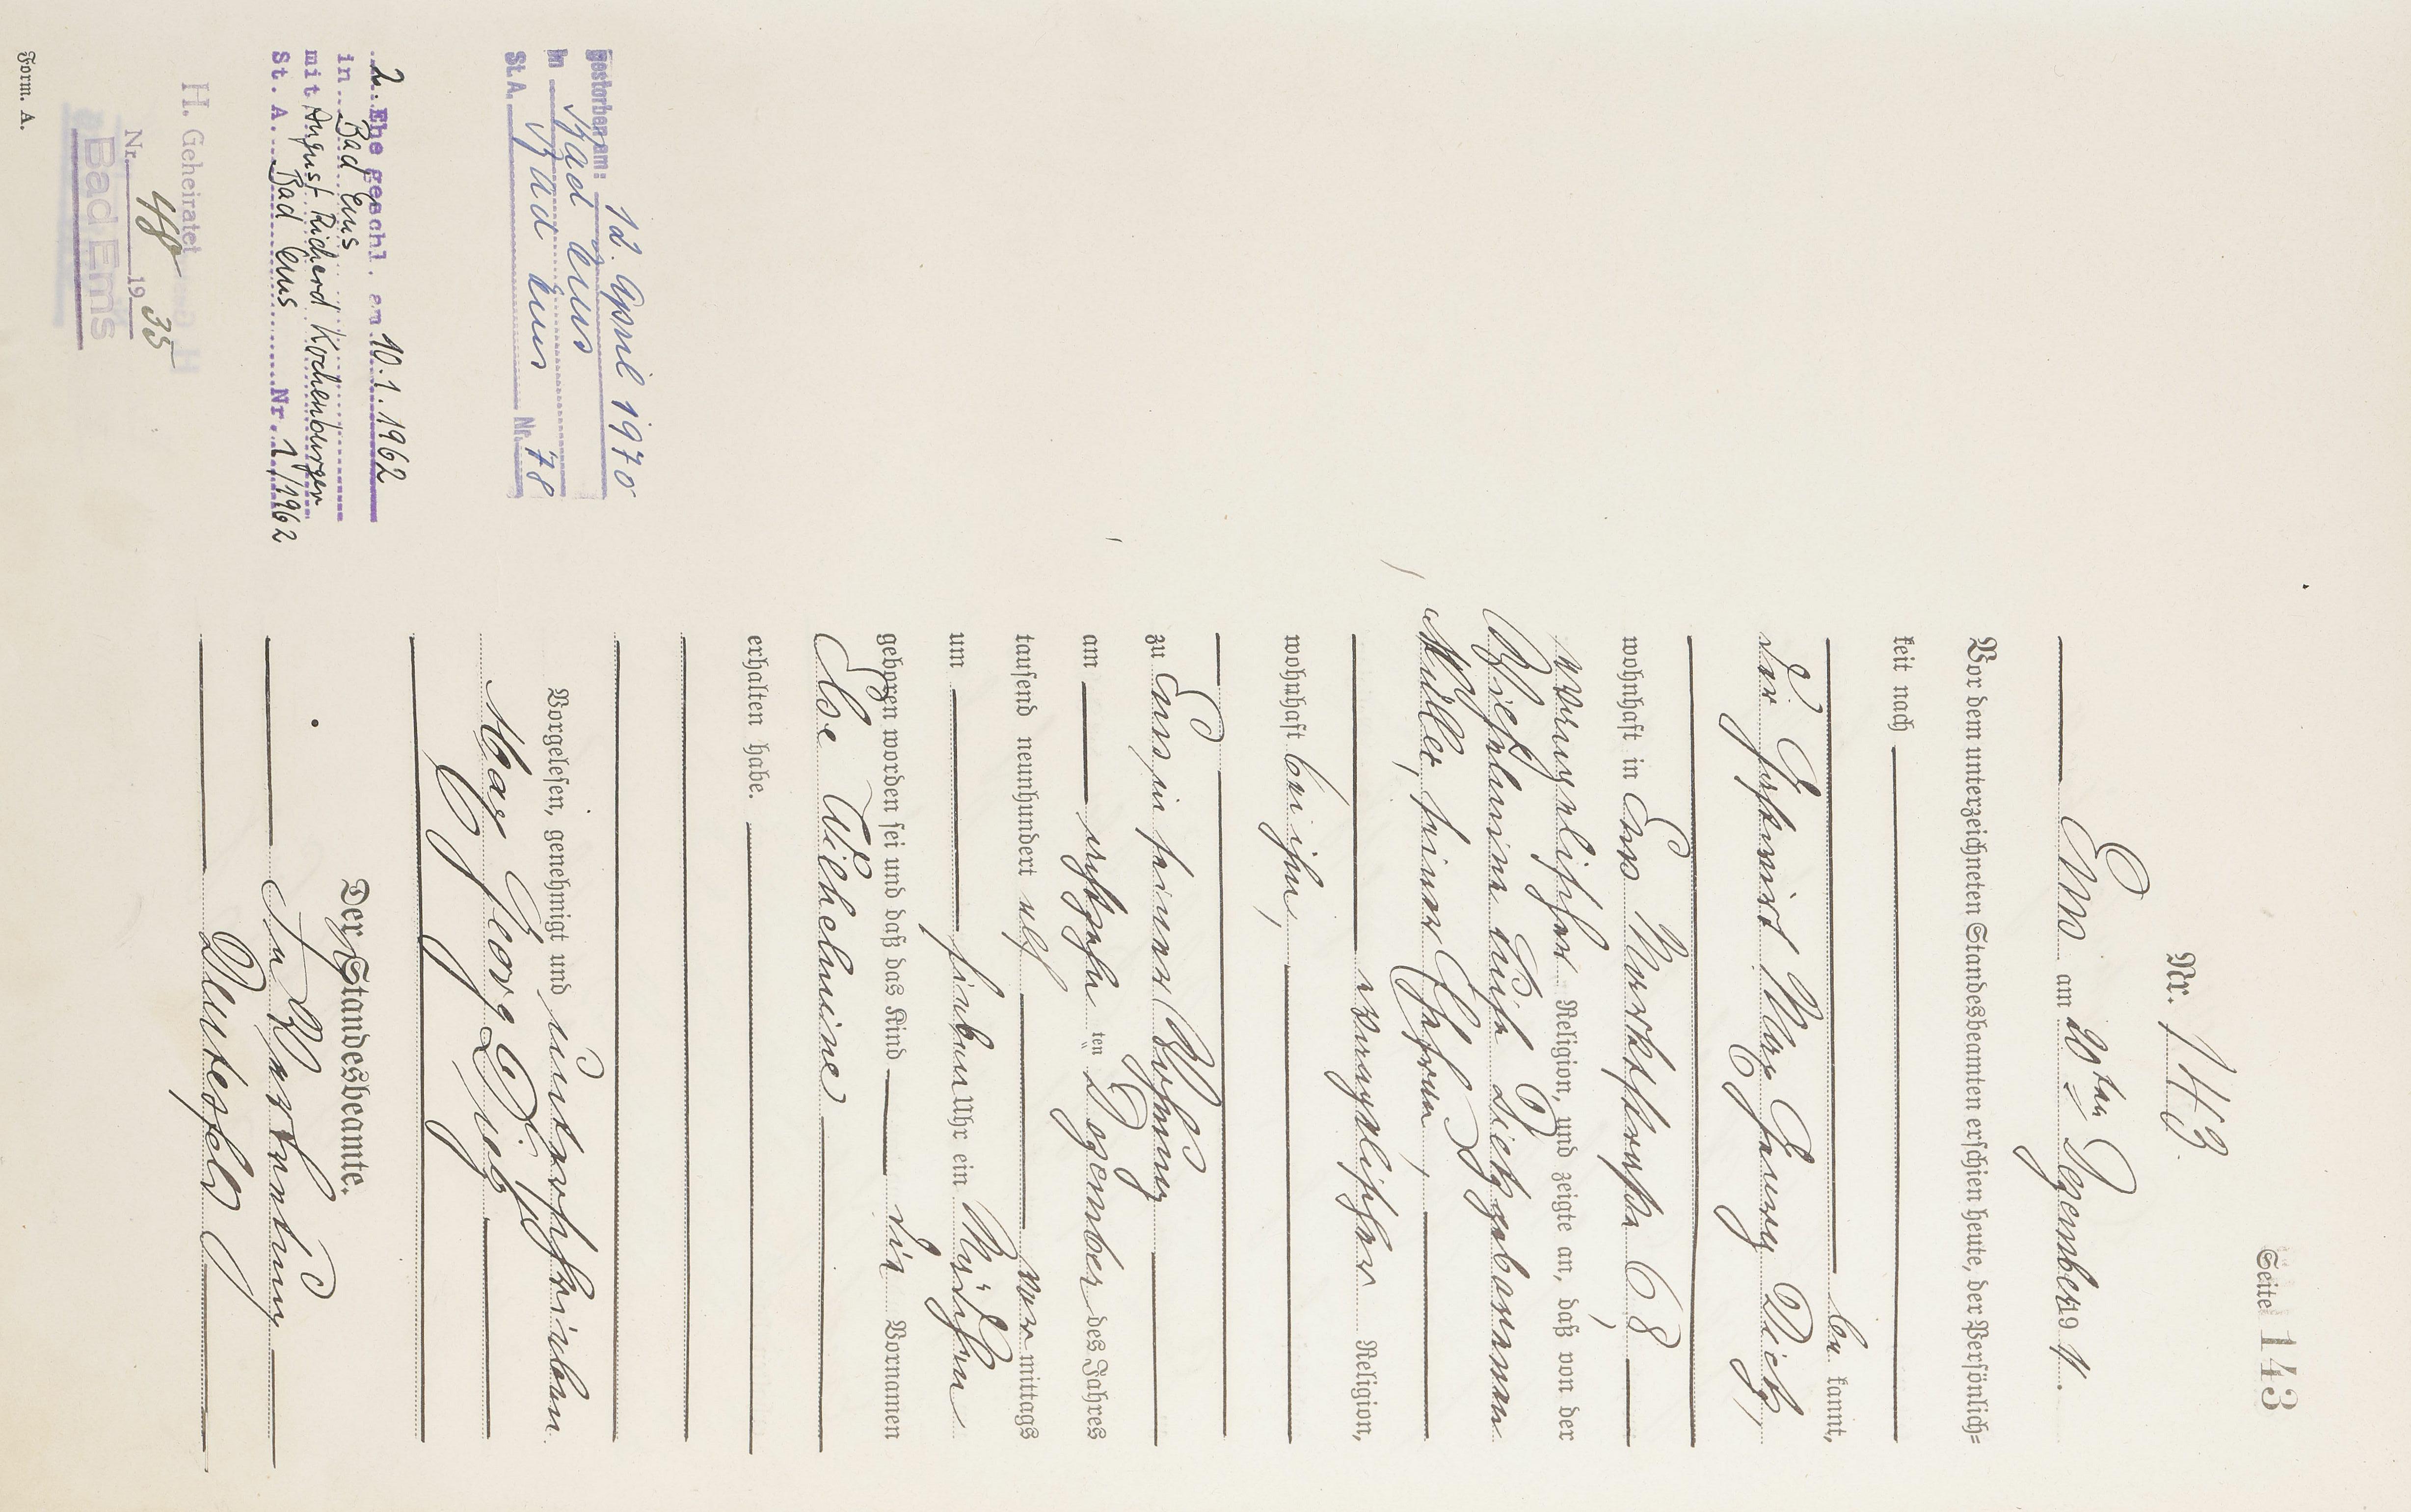 Seite 143
Nr. 143.
Ems am 20ten Dezember 1911.
Vor dem unterzeichneten Standesbeamten erschien heute, der Persönlich=
keit nach
be kannt,
der Gastwirt Max Georg Dietz,
wohnhaft in Ems Marktstraße 68,
evangelischer Religion, und zeigte an, daß von der
Wilhelmine Luise Dietz geborenen
Müller, seiner Ehefrau,
evangelischer Religion,
wohnhaft bei ihm,
zu Ems in seiner Wohnung
am achtzehn ten Dezember des Jahres
tausend neunhundert elf vor mittags
um sieben Uhr ein Mädchen
geboren worden sei und daß das Kind die Vornamen
Else Wilhelmine
erhalten habe.
Vorgelesen, genehmigt und unterschrieben
Max Georg Dietz
Der Standesbeamte.
In Vertretung
gestorben am: 12. April 1970
in Bad Ems
St.A. Bad Ems Nr. 78
2. Ehe geschl. am 10.1.1962
in Bad Ems
mit August Richard Kochenburger
St. A. Bad Ems Nr. 1/1962
H. Geheiratet
Nr. 48 1935
Bad Ems
Form. A.